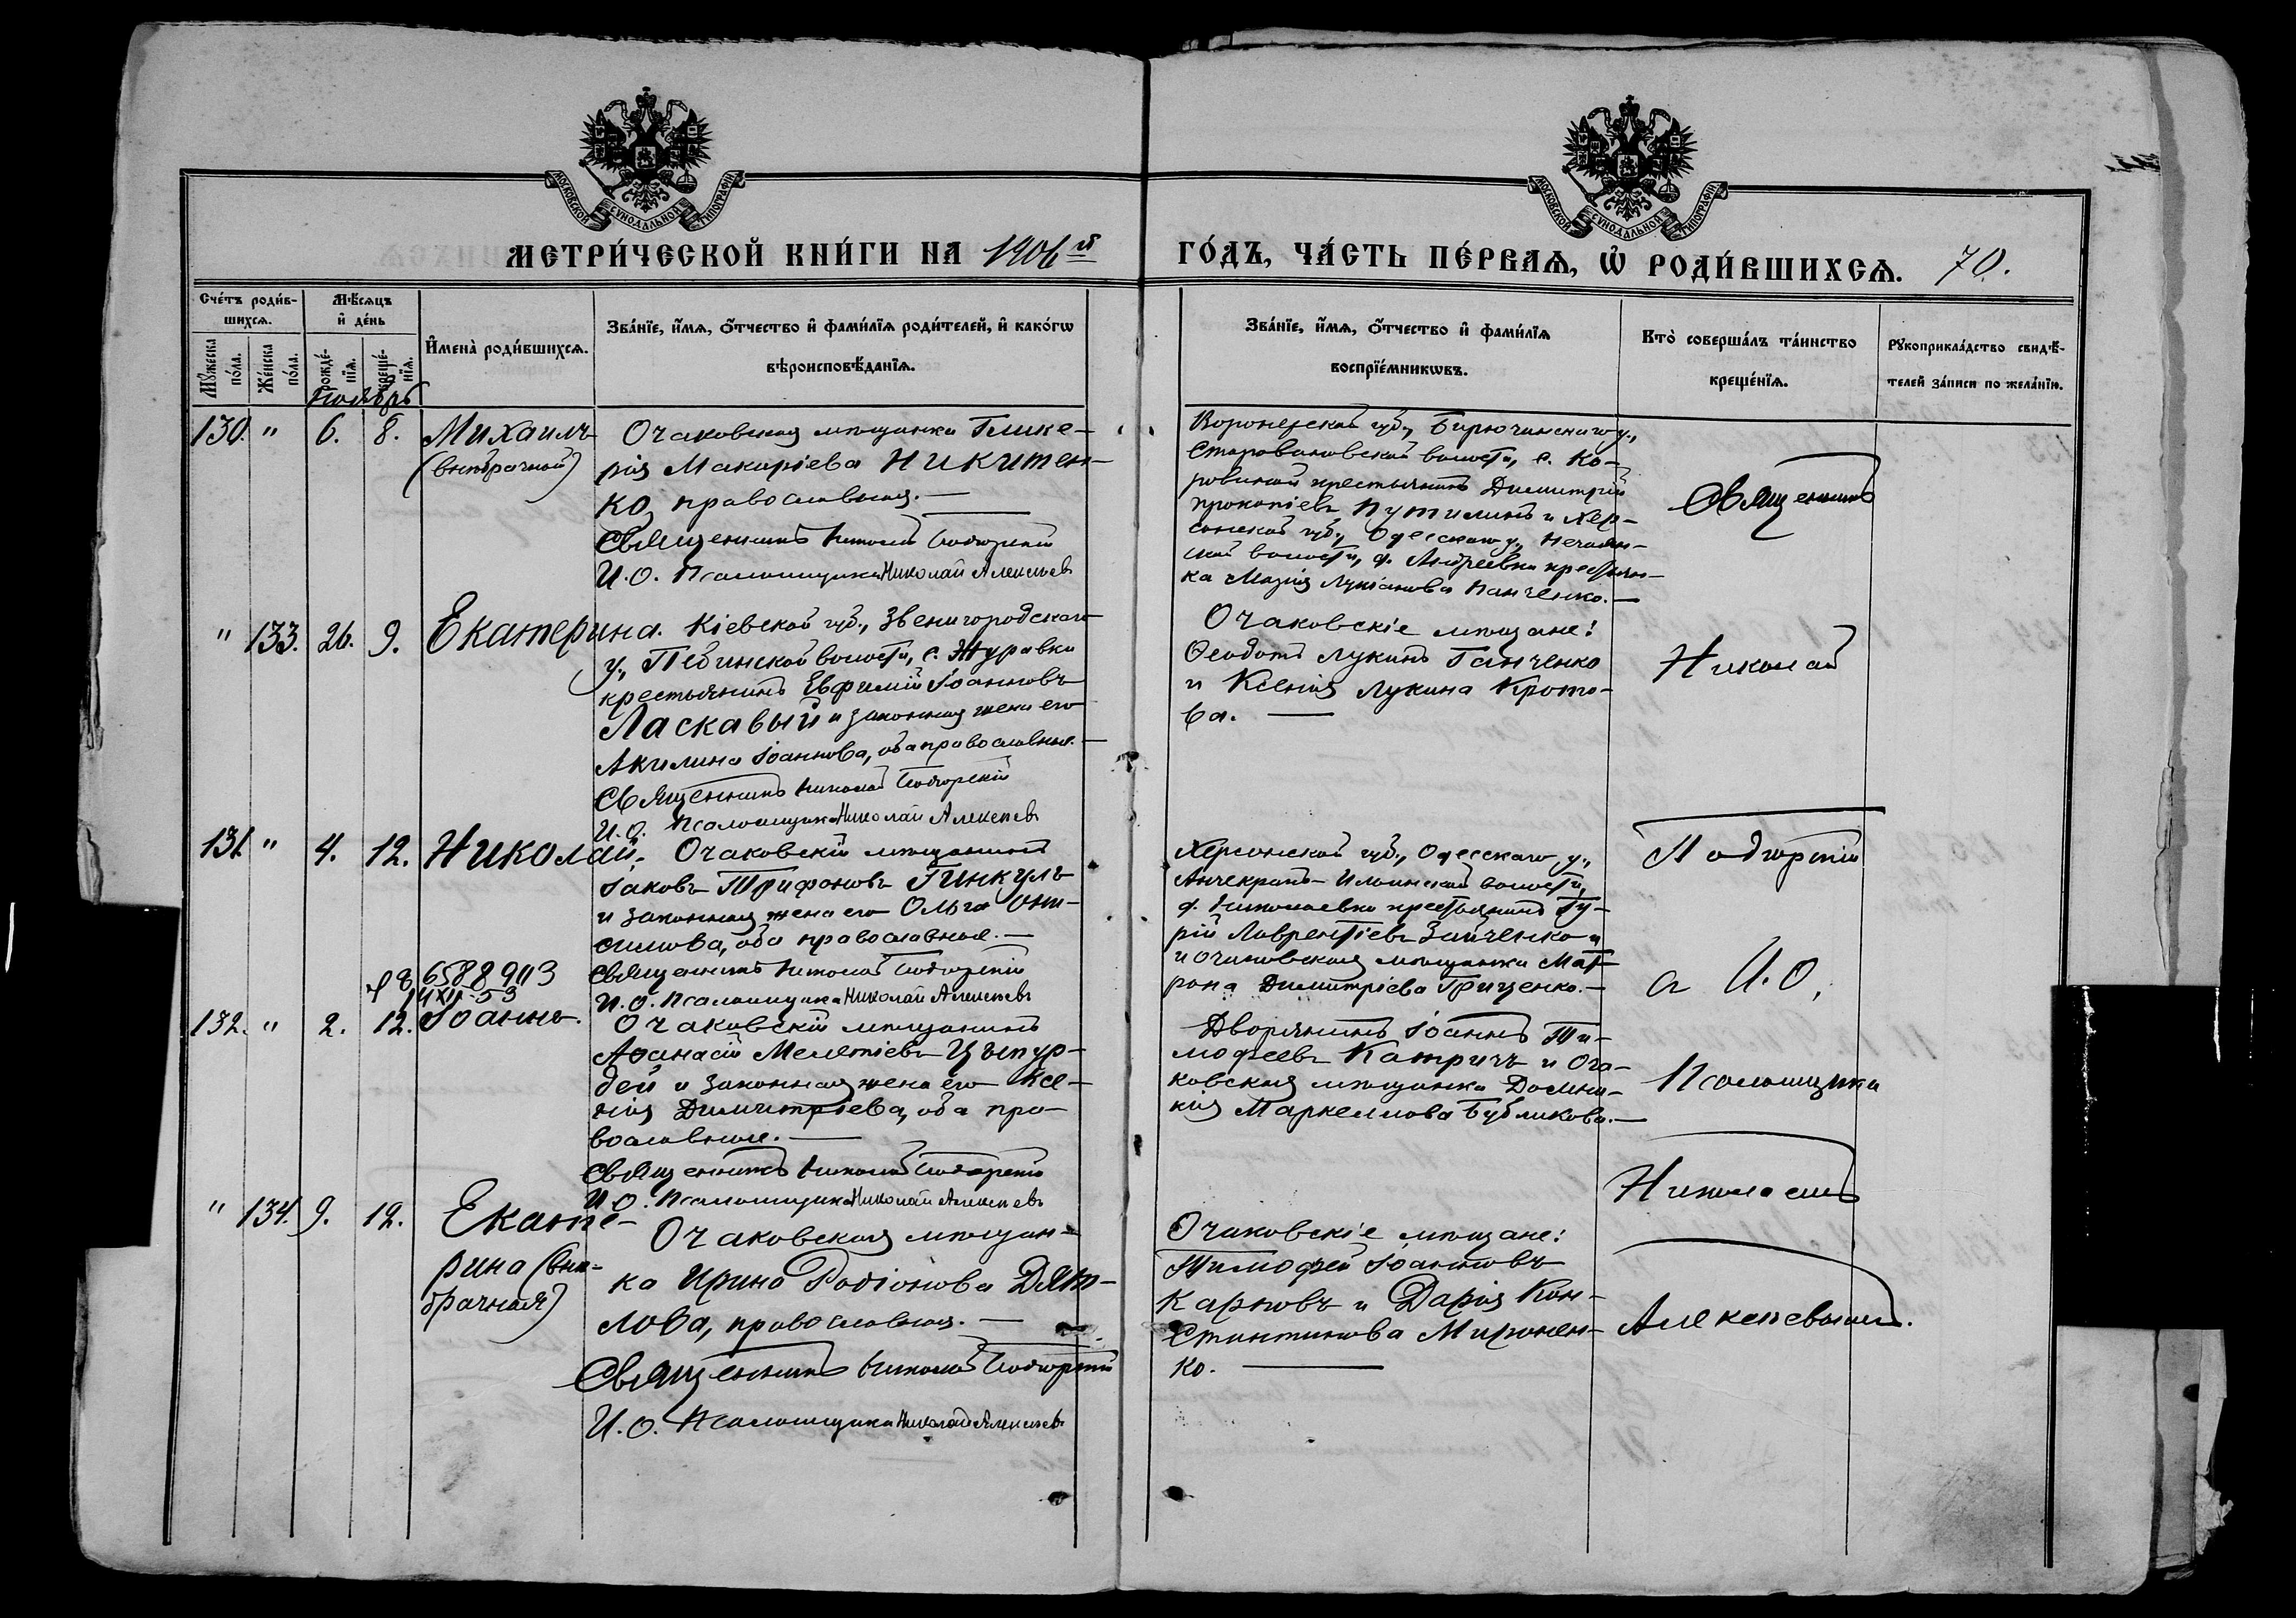 МОСКОВСКОЙ СУНОДАЛЬНОЙ ТИПОГРАФІИ
МОСКОВСКОЙ СУНОДАЛЬНОЙ ТИПОГРАФІИ
МЕТРИ́ЧЕСКОЙ КНИ́ГИ НА 1906й
ГО́ДЪ, ЧА́СТЬ ПЕ́РВАѦ, Ѡ҆ РОДИ́ВШИХСѦ. 70.
Сче́тъ роди́в-
шихсѧ.
Мꙋ́жеска по́ла.
Же́нска по́ла.
Мѣ́сѧцъ
и҆ де́нь
рожде́-нїѧ.
креще́-нїѧ.
Ноябрь
И҆мена̀ роди́вшихсѧ.
Зва́нїе, и҆́мѧ, ѻ҆́тчество и҆ фами́лїѧ роди́телей, и҆ како́гѡ
вѣроисповѣ́данїѧ.
Зва́нїе, и҆́мѧ, ѻ҆́тчество и҆ фами́лїѧ
воспрїе́мникѡвъ.
Кто̀ соверша́лъ та́инство
креще́нїѧ.
Рꙋкоприкла́дство свидѣ́-
телей за́писи по жела́нїю.
130. " 6. 8. Михаилъ
(внѣбрачный)
Очаковская мѣщанка Глике-
рія Макаріева Никитен-
ко, православная.
Священникъ Николай Подгорскій
И. О. Псаломщика Николай Алексѣевъ
Воронежской губ., Бирюченскаго у.,
волости, с. Ко-
крестьянинъ Димитрій
Прокопіевъ Путилинъ и Хер-
сонской губ., Одесскаго у., Нечаян-
ской волости, д. Андреевки крестьян-
ка Марія Лукіанова Панченко.
" 133. 26. 9. Екатерина.
Кіевской губ., Звенигородскаго
у., волости, с. Журавки
крестьянинъ Евфимій Іоанновъ
Ласкавый и законная жена его
Акилина Іоаннова, оба православные.
Священникъ Николай Подгорскій
И. О. Псаломщика Николай Алексѣевъ
Очаковскіе мѣщане:
Ѳеодотъ Лукинъ Ганченко
и Ксенія Лукина Крото-
ва.
131. " 4. 12. Николай.
Очаковскій мѣщанинъ
Іаковъ Трифоновъ Гинкулъ
и законная жена его Ольга Они-
симова, оба православные.
Священникъ Николай Подгорскій
И. О. Псаломщика Николай Алексѣевъ
Херсонской губ., Одесскаго у.,
Анчекракъ-Ильинской волости,
д. Николаевки крестьянинъ Гу-
рій Лаврентіевъ Зайченко и
и очаковская мѣщанка Мат-
рона Димитріева Гриценко.
6588903
14 XII-53
132. " 2. 12. Іоаннъ.
Очаковскій мѣщанинъ
Аѳанасій Мелетіевъ Цыпур-
дей и законная жена его Ксе-
нія Димитріева, оба пра-
вославные.
Священникъ Николай Подгорскій
И. О. Псаломщика Николай Алексѣевъ
Дворянинъ Іоаннъ Ти-
мофеевъ Катричъ и Оча-
ковская мѣщанка Домни-
кія Маркеллова Бубликова.
" 134. 9. 12. Екате-
рина (внѣ-
брачная)
Очаковская мѣщан-
ка Ирина Родіонова Дят-
лова, православная.
Священникъ Николай Подгорскій
И. О. Псаломщика Николай Алексѣевъ
Очаковскіе мѣщане:
Тимофей Іоанновъ
Карповъ и Дарія Кон-
стантинова Миронен-
ко.
Священникъ
Николай
Подгорскій
с И. О.
Псаломщика
Николаемъ
Алексѣевымъ.